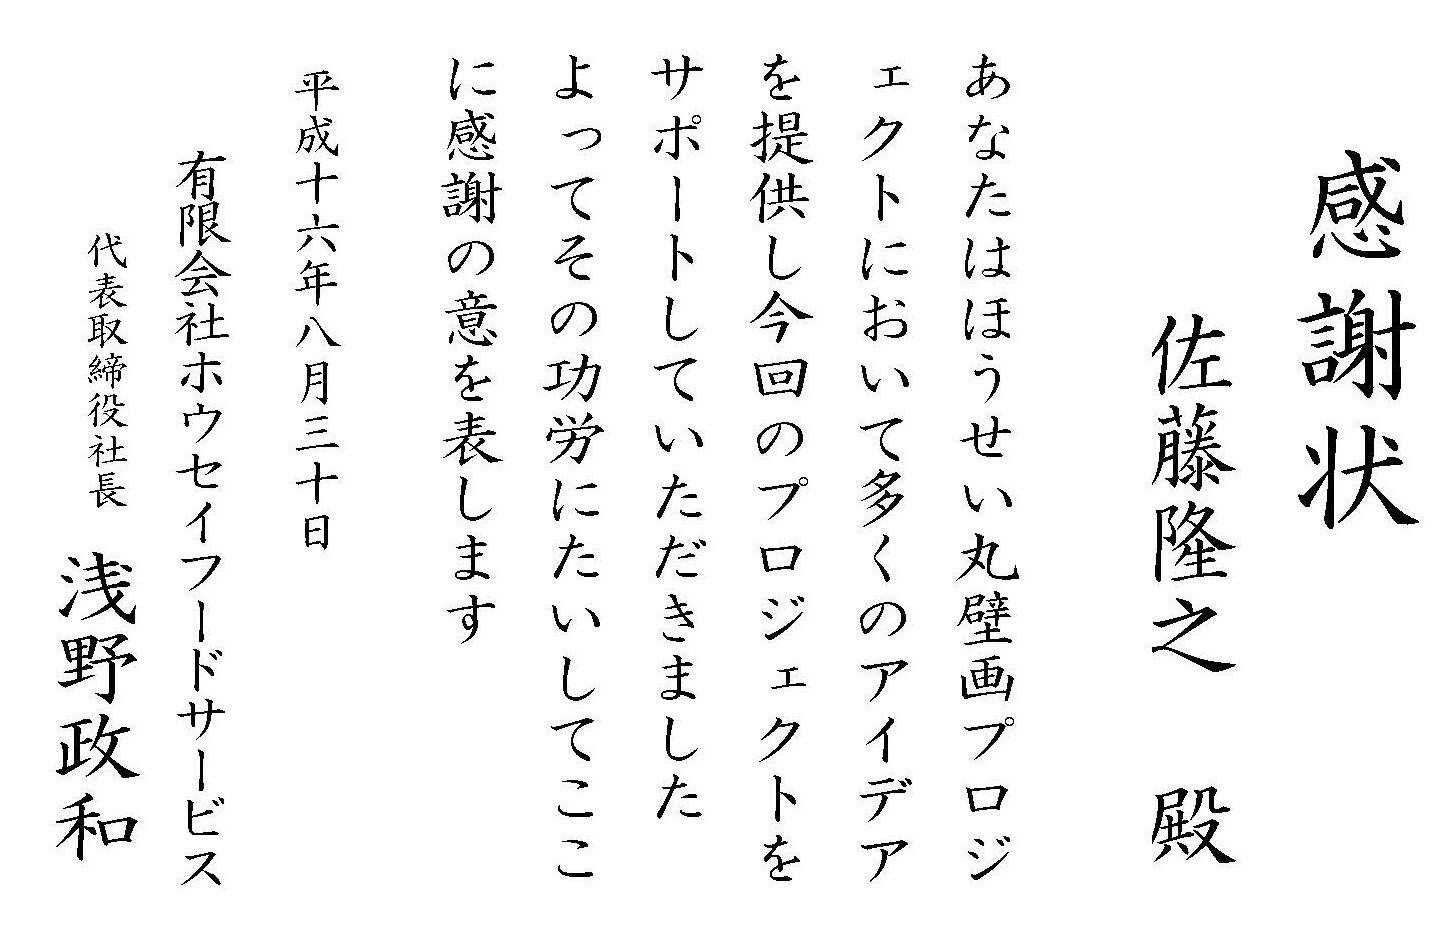 感謝状
佐藤隆之　殿
あなたはほうせい丸壁画プロジ
ェクトにおいて多くのアイデア
を提供し今回のプロジェクトを
サポートしていただきました
よってその功労にたいしてここ
に感謝の意を表します
平成十六年八月三十日
有限会社ホウセイフードサービス
代表取締役社長　浅野政和